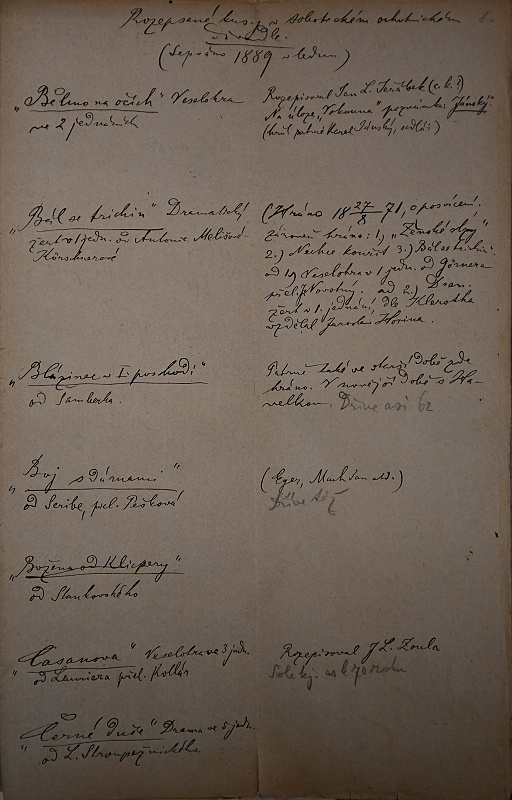 Rozepsané kusy v soboteckém ochotnickém
divadle.
(Sepsáno 1889 v lednu)
„Bělmo na očích" Veselohra
ve 2 jednáních
Rozepisoval Jan L. Jeřábek (c.k.?)
Na úloze „Vokouna" poznámka: Jánský.
(hrál patrně Karel Jánský, sedlář)
„Bál se trichin" Dramatický
žert v 1 jedn. od Antonie Melišové-
Körschnerové
(Hráno 18 27/8 71, o posvícení.
Zároveň hráno: 1) „Ženské slzy"
2.) Nechce kouřit 3.) Bál se trichin.
od 1) Veselohra v 1 jedn. od Görnera
přel. J. Novotný. ad 2.) Dram.
žert v 1. jednání dle
vzdělal Jaroslav Horina.
„Blázinec v I. poschodí"
od Šamberka.
Patrně také ve starší době zde
hráno. V novější době s Ha-
velkou. Dříve asi 62
„Boj s dámami"
od Scribe, přel. Pešková
(Eger, Mach Jan atd.)
Dříve též
„Božena od Klicpery"
od Stankovského
„Casanova" Veselohra ve 3 jedn.
od přel. Kollár
Rozepisoval J L. Zoula
roku
„Černé duše" Drama ve 5 jedn.
od L. Stroupežnického.